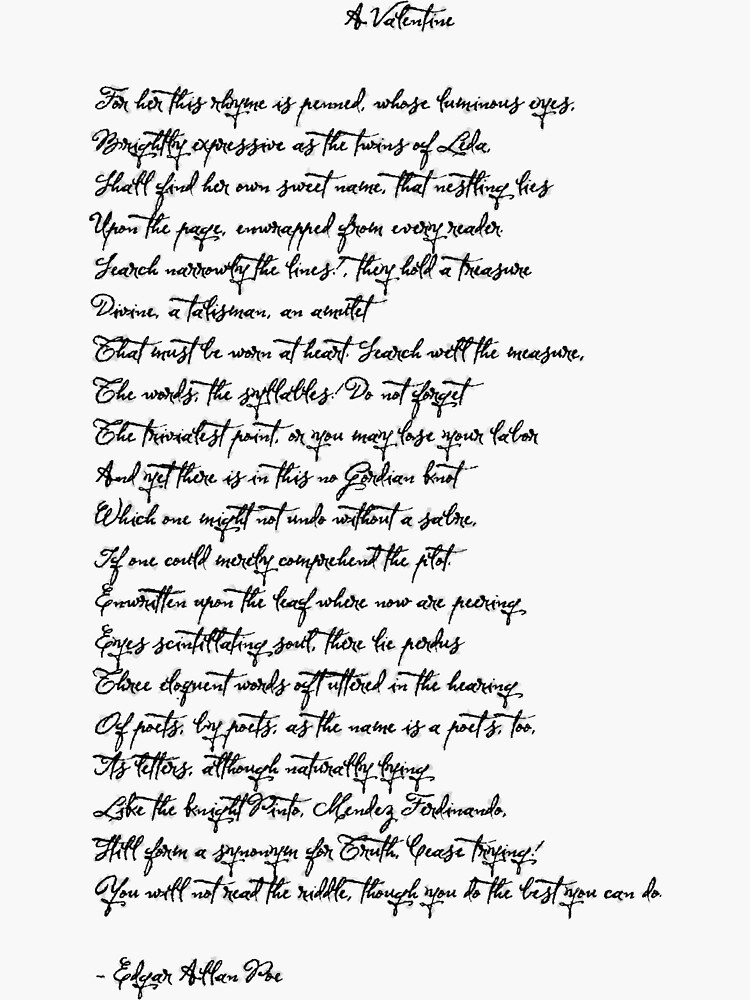 A Valentine
For her this rhyme is penned, whose luminous eyes,
Brightly expressive as the twins of Leda,
Shall find her own sweet name, that nestling lies
Upon the page, enwrapped from every reader.
Search narrowly the lines!, they hold a treasure
Divine, a talisman, an amulet
That must be worn at heart. Search well the measure,
The words, the syllables! Do not forget
The trivialest point, or you may lose your labor
And yet there is in this no Gordian knot
Which one might not undo without a sabre,
If one could merely comprehend the plot.
Enwritten upon the leaf where now are peering
Eyes scintillating soul, there lie perdus
Three eloquent words oft uttered in the hearing
Of poets, by poets, as the name is a poet's, too,
Its letters, although naturally lying
Like the knight Pinto, Mendez Ferdinando,
Still form a synonym for Truth, Cease trying!
You will not read the riddle, though you do the best you can do.
- Edgar Allan Poe